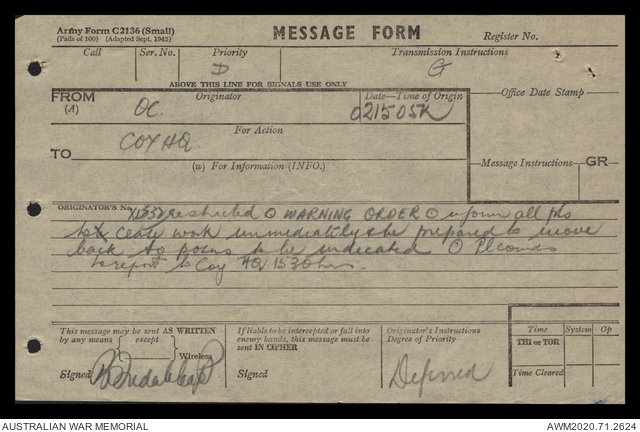 Army Form C2136 (Small)
(Pads of 100) (Adapted Sept. 1942)
MESSAGE FORM
Register No.
Call
Ser. No.
Priority
Transmission Instructions
D
G
ABOVE THIS LINE FOR SIGNALS USE ONLY
FROM
(A)
Originator
Date—Time of Origin
Office Date Stamp
OC.
021505K
For Action
TO
COY HQ
(w) For Information (INFO.)
Message Instructions
GR
ORIGINATOR'S No.
restricted O WARNING ORDER O inform all pls
to work immediately & be prepared to move
back to posns to be indicated O Pl comds
to report to Coy HQ 1530 hrs.
This message may be sent AS WRITTEN
by any means
except
Wireless
Signed
If liable to be intercepted or fall into
enemy hands, this message must be
sent IN CIPHER
Signed
Originator's Instructions
Degree of Priority
Deferred
Time
System
Op
THI or TOR
Time Cleared
AUSTRALIAN WAR MEMORIAL
AWM2020.71.2624